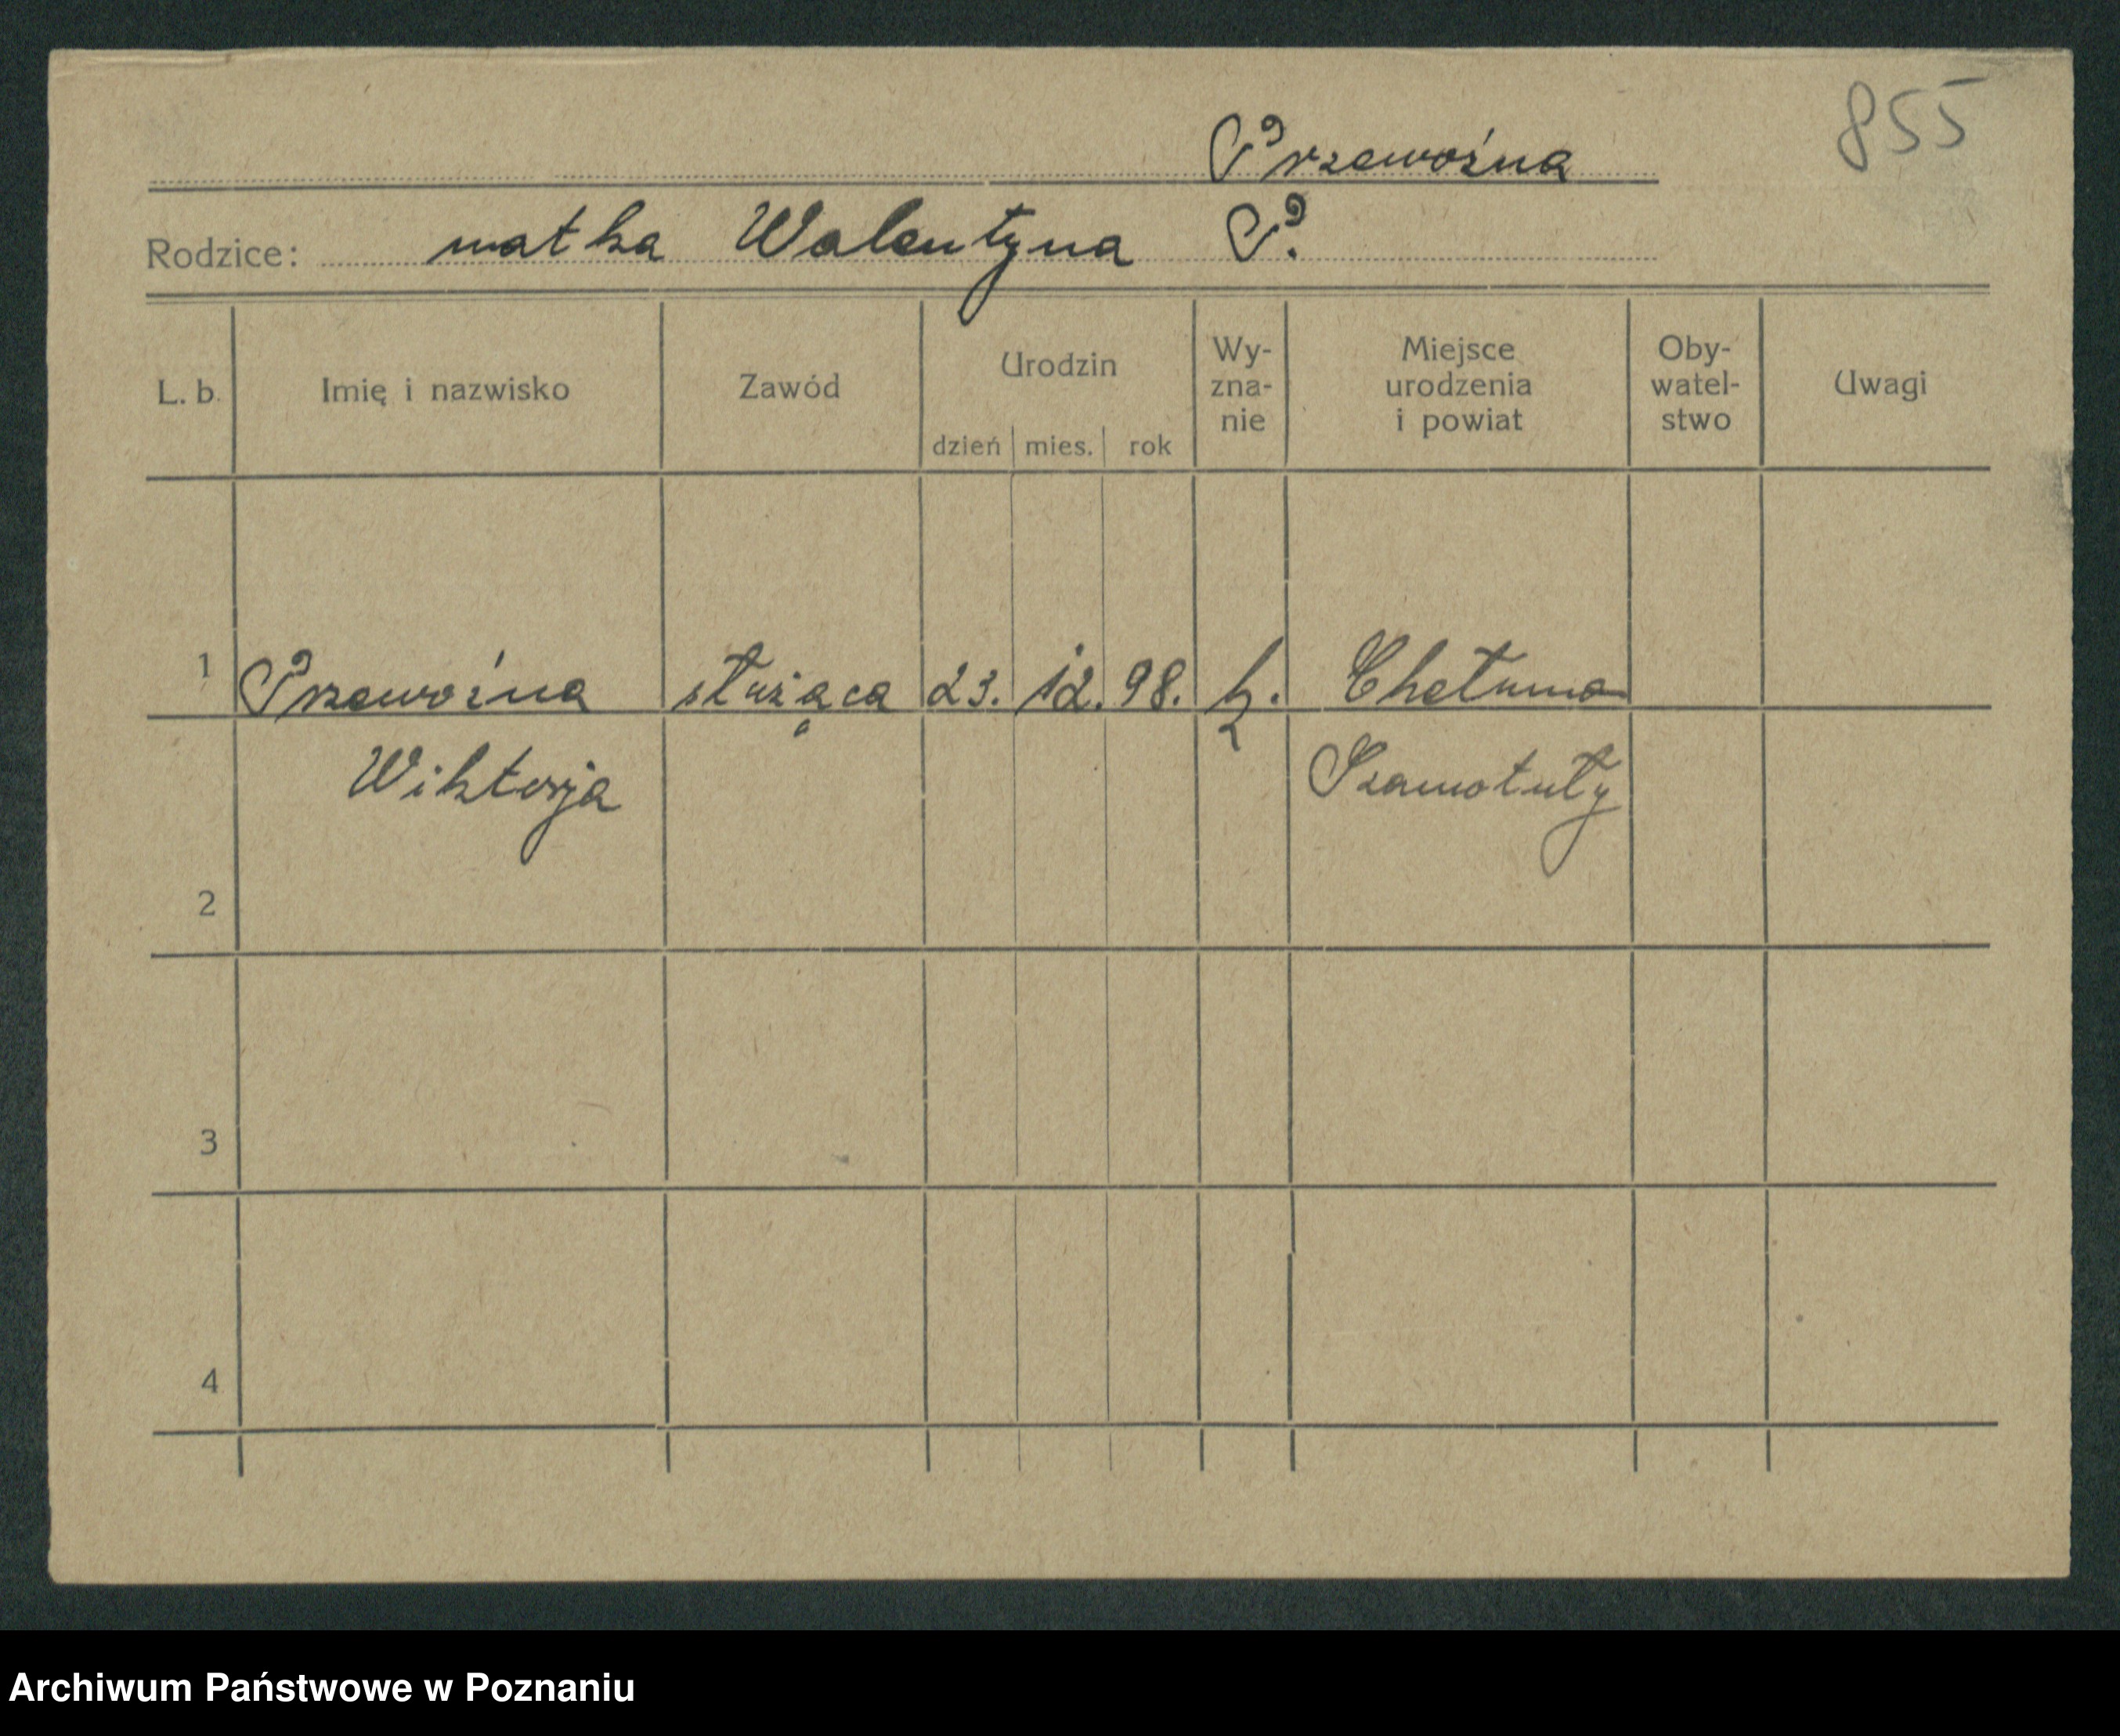 855
Przewoźna
Rodzice: matka Walentyna P.
L. b. Imię i nazwisko Zawód Urodzin dzień mies. rok Wy-zna-nie Miejsce urodzenia i powiat Oby-watel-stwo Uwagi
1 Przewoźna służąca 23. 12. 98. k. Chełmna
Wiktorja Szamotuły
2
3
4
Archiwum Państwowe w Poznaniu